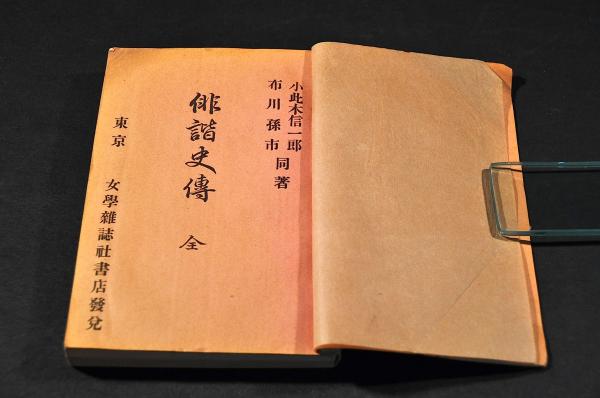 小此木信一郎
布川孫市 同著
俳諧史傳 全
東京 女學雜誌社書店發兌